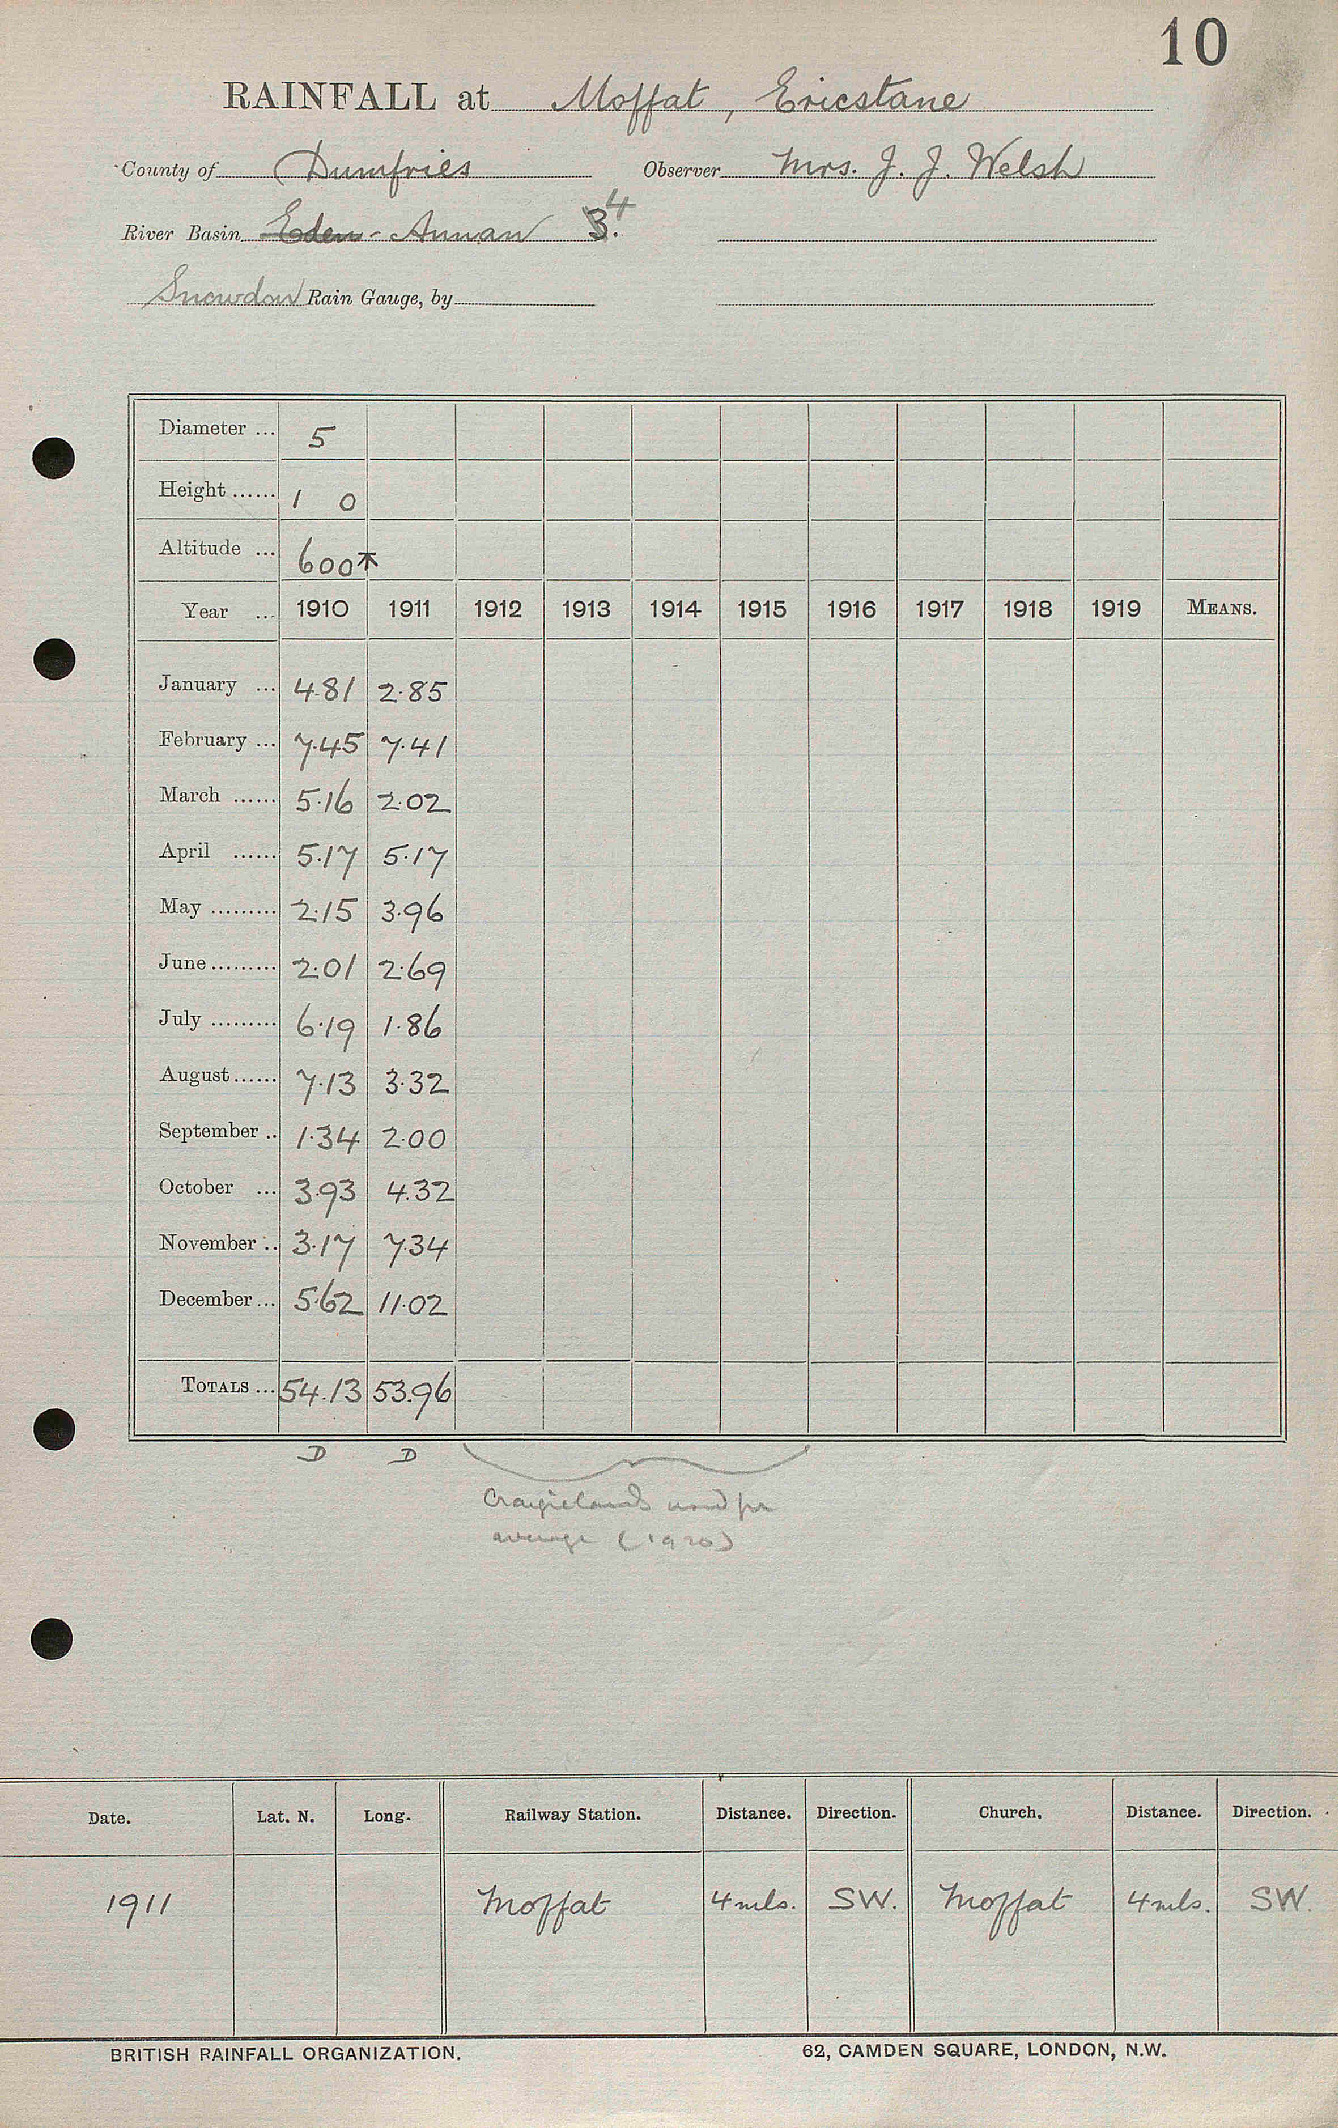 10
RAINFALL at Moffat, Ericstane
County of Dumfries Observer Mrs. J. J. Welsh
River Basin Eden - Annan 3. 4
Snowdon Rain Gauge, by
Diameter ... 5
Height ...... 1 0
Altitude ... 600
Year ... 1910 1911 1912 1913 1914 1915 1916 1917 1918 1919 MEANS.
January ... 4.81 2.85
February ... 7.45 7.41
March ...... 5.16 2.02
April ...... 5.17 5.17
May ......... 2.15 3.96
June ......... 2.01 2.69
July ......... 6.19 1.86
August ...... 7.13 3.32
September .. 1.34 2.00
October ... 3.93 4.32
November .. 3.17 7.34
December ... 5.62 11.02
TOTALS ... 54.13 53.96
D D
Craigielands used for
average (1920)
Date. Lat. N. Long. Railway Station. Distance. Direction. Church. Distance. Direction.
1911 Moffat 4 mls. SW. Moffat 4 mls. SW.
BRITISH RAINFALL ORGANIZATION. 62, CAMDEN SQUARE, LONDON, N.W.